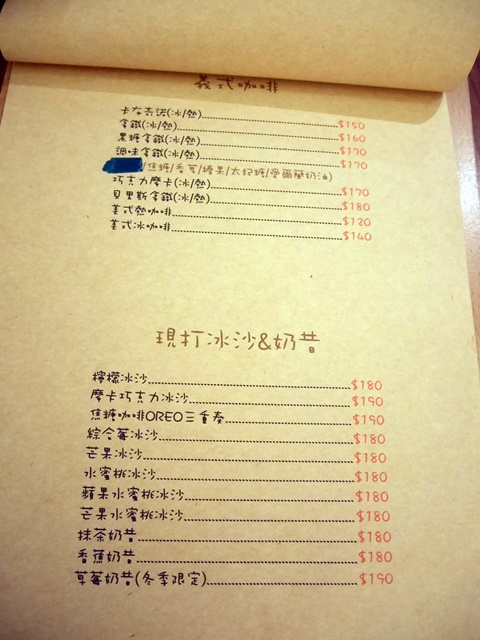 義式咖啡
卡布奇諾(冰/熱)$150
拿鐵(冰/熱)$160
黑糖拿鐵(冰/熱)$170
調味拿鐵(冰/熱)$170
/焦糖/香草/榛果/太妃糖/愛爾蘭奶油)
巧克力摩卡(冰/熱)$170
貝里斯拿鐵(冰/熱)$180
美式熱咖啡$120
美式冰咖啡$140
現打冰沙&奶昔
檸檬冰沙$180
摩卡巧克力冰沙$190
焦糖咖啡OREO三重奏$190
綜合莓冰沙$180
芒果冰沙$180
水蜜桃冰沙$180
蘋果水蜜桃冰沙$180
芒果水蜜桃冰沙$180
抹茶奶昔$180
香蕉奶昔$180
草莓奶昔(冬季限定)$190